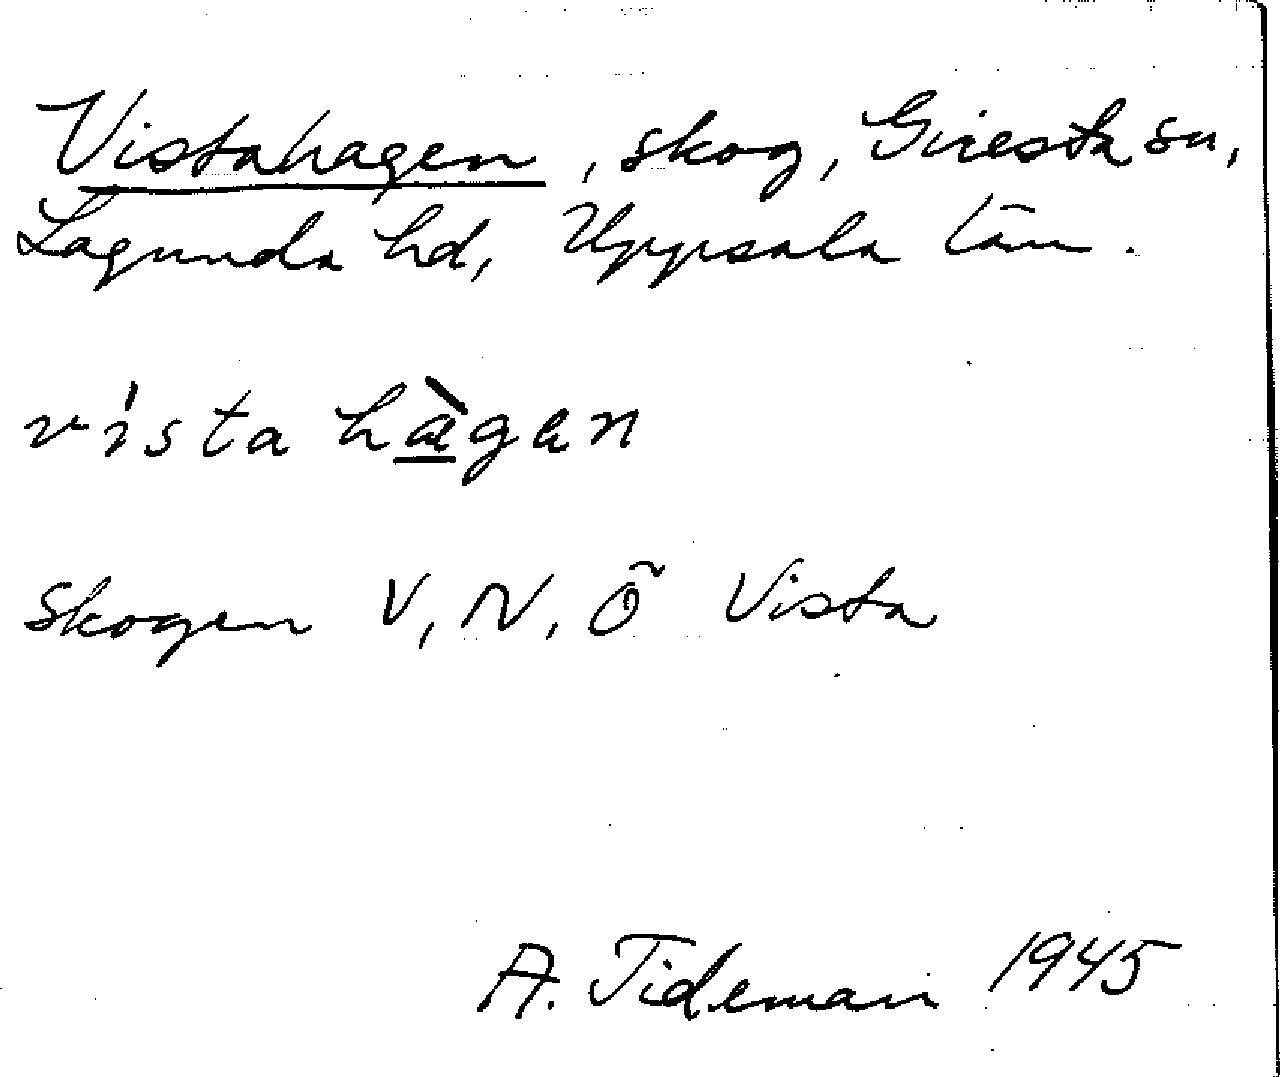 Vistahagen, skog, Giresta sn,
Lagunda hd, Uppsala län.
vista hàgen
skogen V, N, Ö Vista
A. Tideman 1945